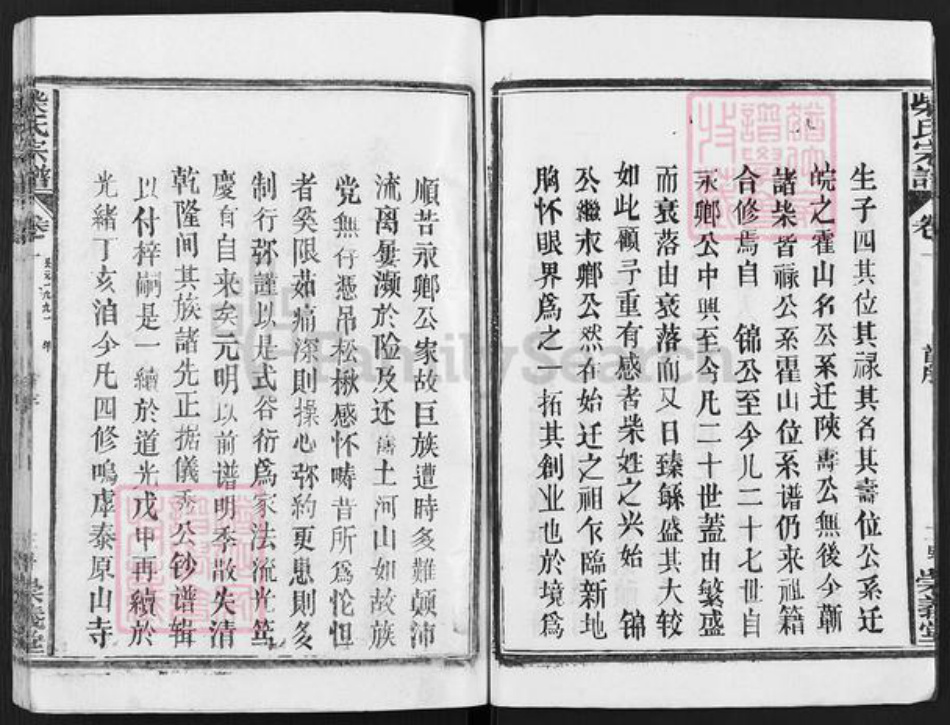 柴氏宗譜
卷一
首序
崇義堂
生子四其位其禄其名其壽位公系迁
皖之霍山名公系迁陕壽公無後今蘄
諸柴皆禄公系霍山位系谱仍来祖籍
合修焉自 錦公至今凡二十七世自
永鄉公中興至今凡二十世蓋由繁盛
而衰落由衰落而又日臻繇盛其大较
如此顧予重有感者柴姓之兴始 锦
公繼永鄉公然在始迁之祖乍臨新地
胸怀眼界爲之一拓其創业也於境爲
順苦永鄉公家故巨族遭時多難颠沛
流离屡濒於险及还 土河山如故族
党無存憑吊松楸感怀畴昔所爲怆怛
者奚限茹痛深则操心弥约更患则多
制行弥謹以是式谷衍爲家法流光笃
慶有自来矣元明以前谱明季散失清
乾隆间其族諸先正据儀秀公钞谱辑
以付梓嗣是一續於道光戊申再續於
光緒丁亥洎今凡四修鸣虖泰原山寺
柴氏宗譜
卷一
公元一九九一年
崇義堂
FamilySearch